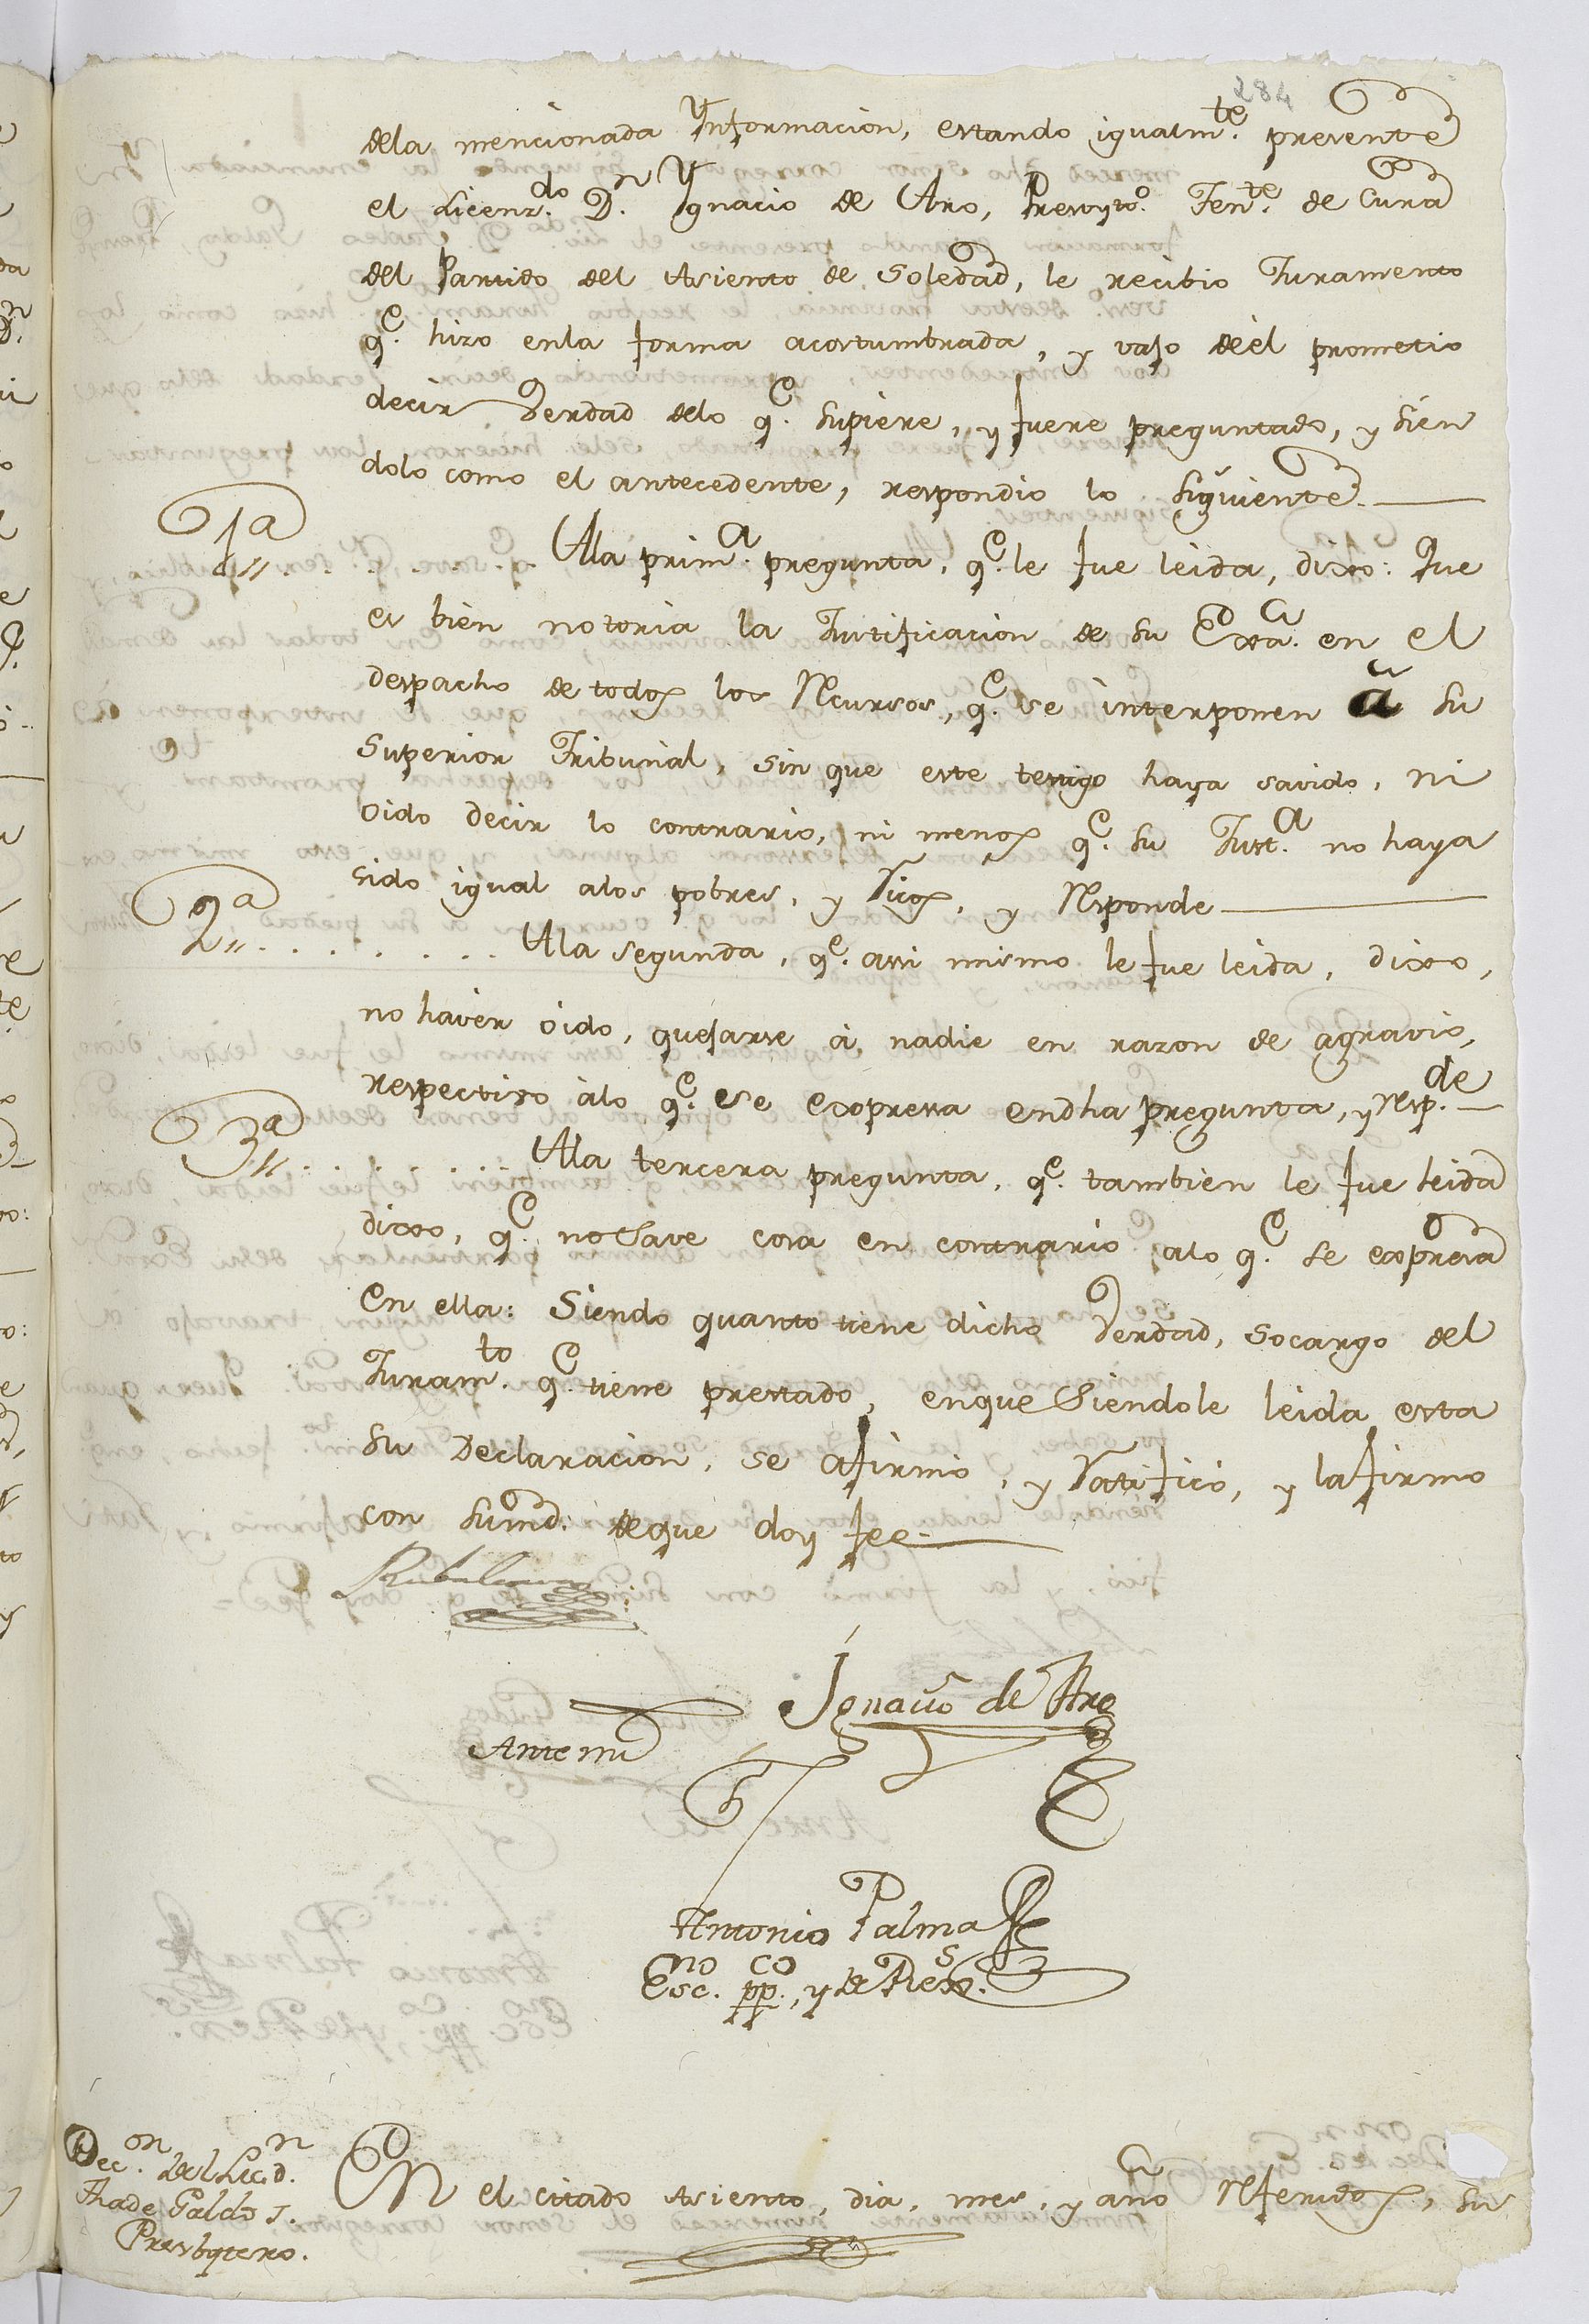 284
dela mencionada Ynformacion, estando igualmte. presente
el Licenzdo. Dn. Ygnacio de Aro, Presvyto. Tente. de Cura
del Partido del Asiento de Soledad, le recibio Juramento
qe. hizo enla forma acostumbrada, y vajo deèl prometio
decir Verdad delo qe. supiere, y fuere preguntado, y sien
dolo como el antecedente, respondio lo siguiente.
1a. Ala prima. pregunta, qe. le fue leida, dixo: Que
es bien notoria la Justificacion de su Exa. en el
despacho de todos los Recursos, qe. se interponen à su
Superior Tribunal, sin que este testigo haya savido, ni
oido decir lo contrario, ni menos qe. su Justa. no haya
sido igual alos pobres, y Ricos, y Responde
2a. Ala segunda, qe. assi mismo le fue leida, dixo,
no haver oido, quejarse à nadie en razon de agravio,
respectivo àlo qe. se expressa endha pregunta, y Respde.
3a. Ala tercera pregunta, qe. tambien le fue leida
dixo, qe. no save cosa en contrario alo qe. se expresa
en ella: Siendo quanto tiene dicho Verdad, socargo del
Juramto. qe. tiene prestado, enque siendole leida esta
su Declaracion, se afirmó, y Ratificó, y lafirmo
con sumd. deque doy fee.
Ignacio de Aro
Ante mi
Antonio Palma
Escno. ppco., y de Rexs.
Decon. del Licdn.
Thade Galdos.
Presbytero.
En el citado Asiento, dia, mes, y año Referidos, su